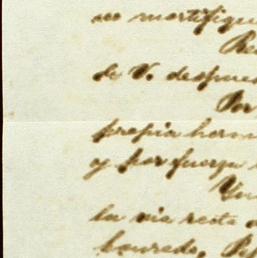 no mortifique
Re
de V. despues
Por
propia herm
y por fuerza
You
la via recta
honrado, P